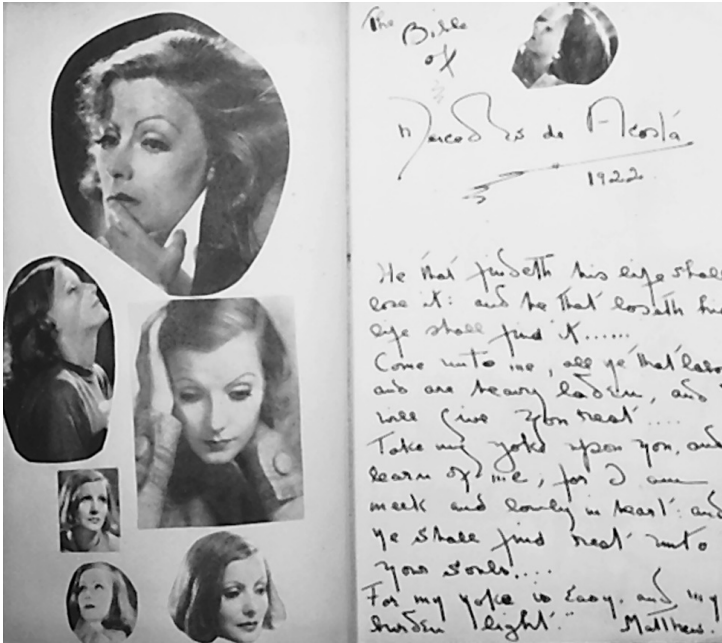 The Bible
of
Mercedes de Acostá
1922
He that findeth his life shall
lose it: and he that loseth his
life shall find it......
Come unto me, all ye that labo
and are heavy laden, and I
will give you rest....
Take my yoke upon you, and
learn of me, for I am
meek and lowly in heart: and
ye shall find rest unto
your souls....
For my yoke is Easy, and my
burden light." Matthew.